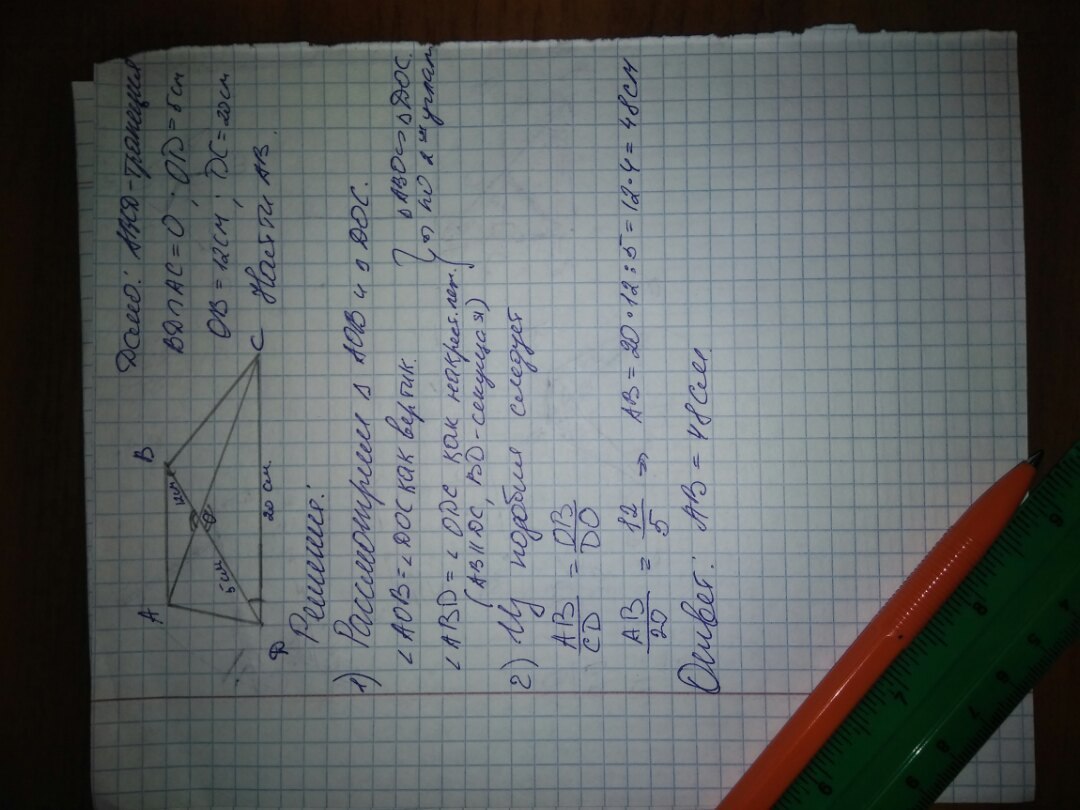 A
B
12см
O
5см
20 см.
D
C
Дано: ABCD-трапеция
BD∩AC=O; OD=5см
OB=12см; DC=20см
Найти AB
Решения:
1) Рассмотрим △ AOB и △ DOC.
∠AOB=∠DOC как вертик.
∠ABD=∠ODC как накрест.леж.
(AB∥DC, BD-секущая)
} ⇒ △ABO∾△DOC.
по 2м углам
2) Из подобия следует
AB/CD = OB/DO
AB/20 = 12/5 ⇒ AB=20·12:5=12·4=48см
Ответ: AB=48см.